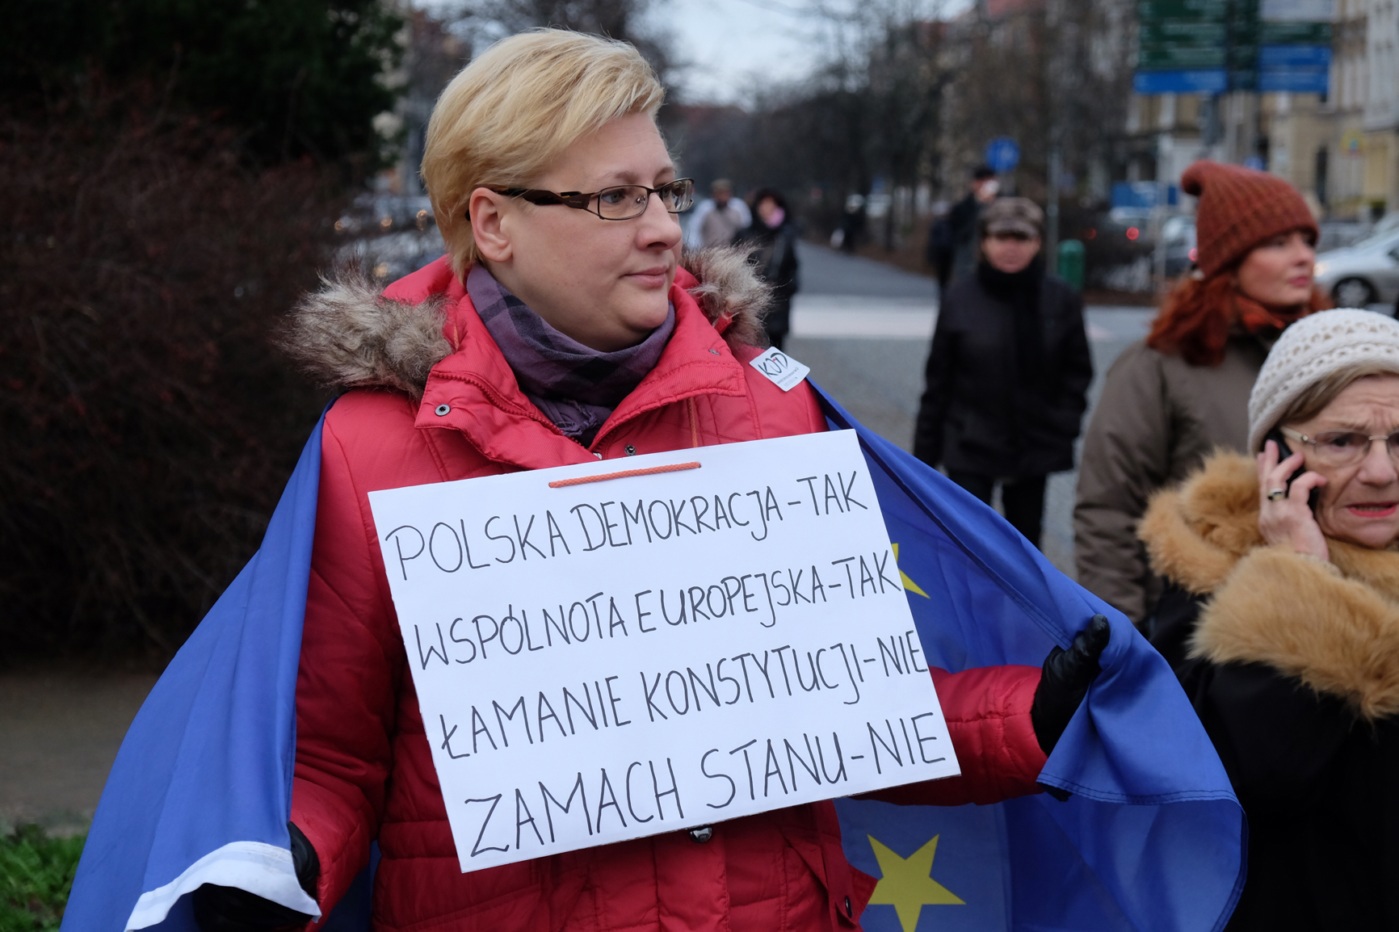 KOD
POLSKA DEMOKRACJA-TAK
WSPÓLNOTA EUROPEJSKA-TAK
ŁAMANIE KONSTYTUCJI-NIE
ZAMACH STANU-NIE